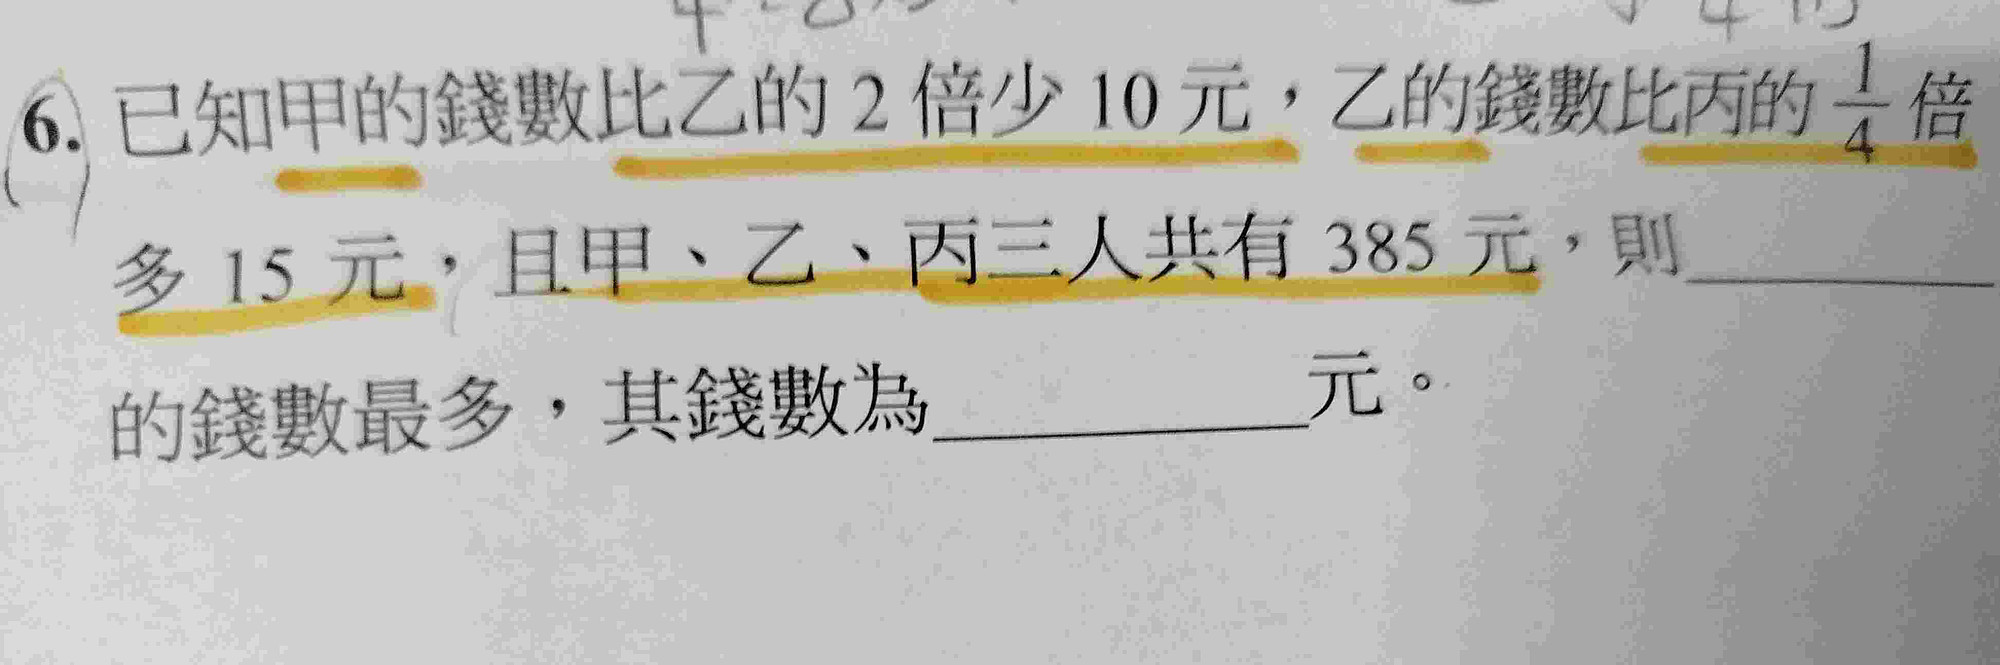 6. 已知甲的錢數比乙的 2 倍少 10 元，乙的錢數比丙的 1/4 倍
多 15 元，且甲、乙、丙三人共有 385 元，則________
的錢數最多，其錢數為________元。